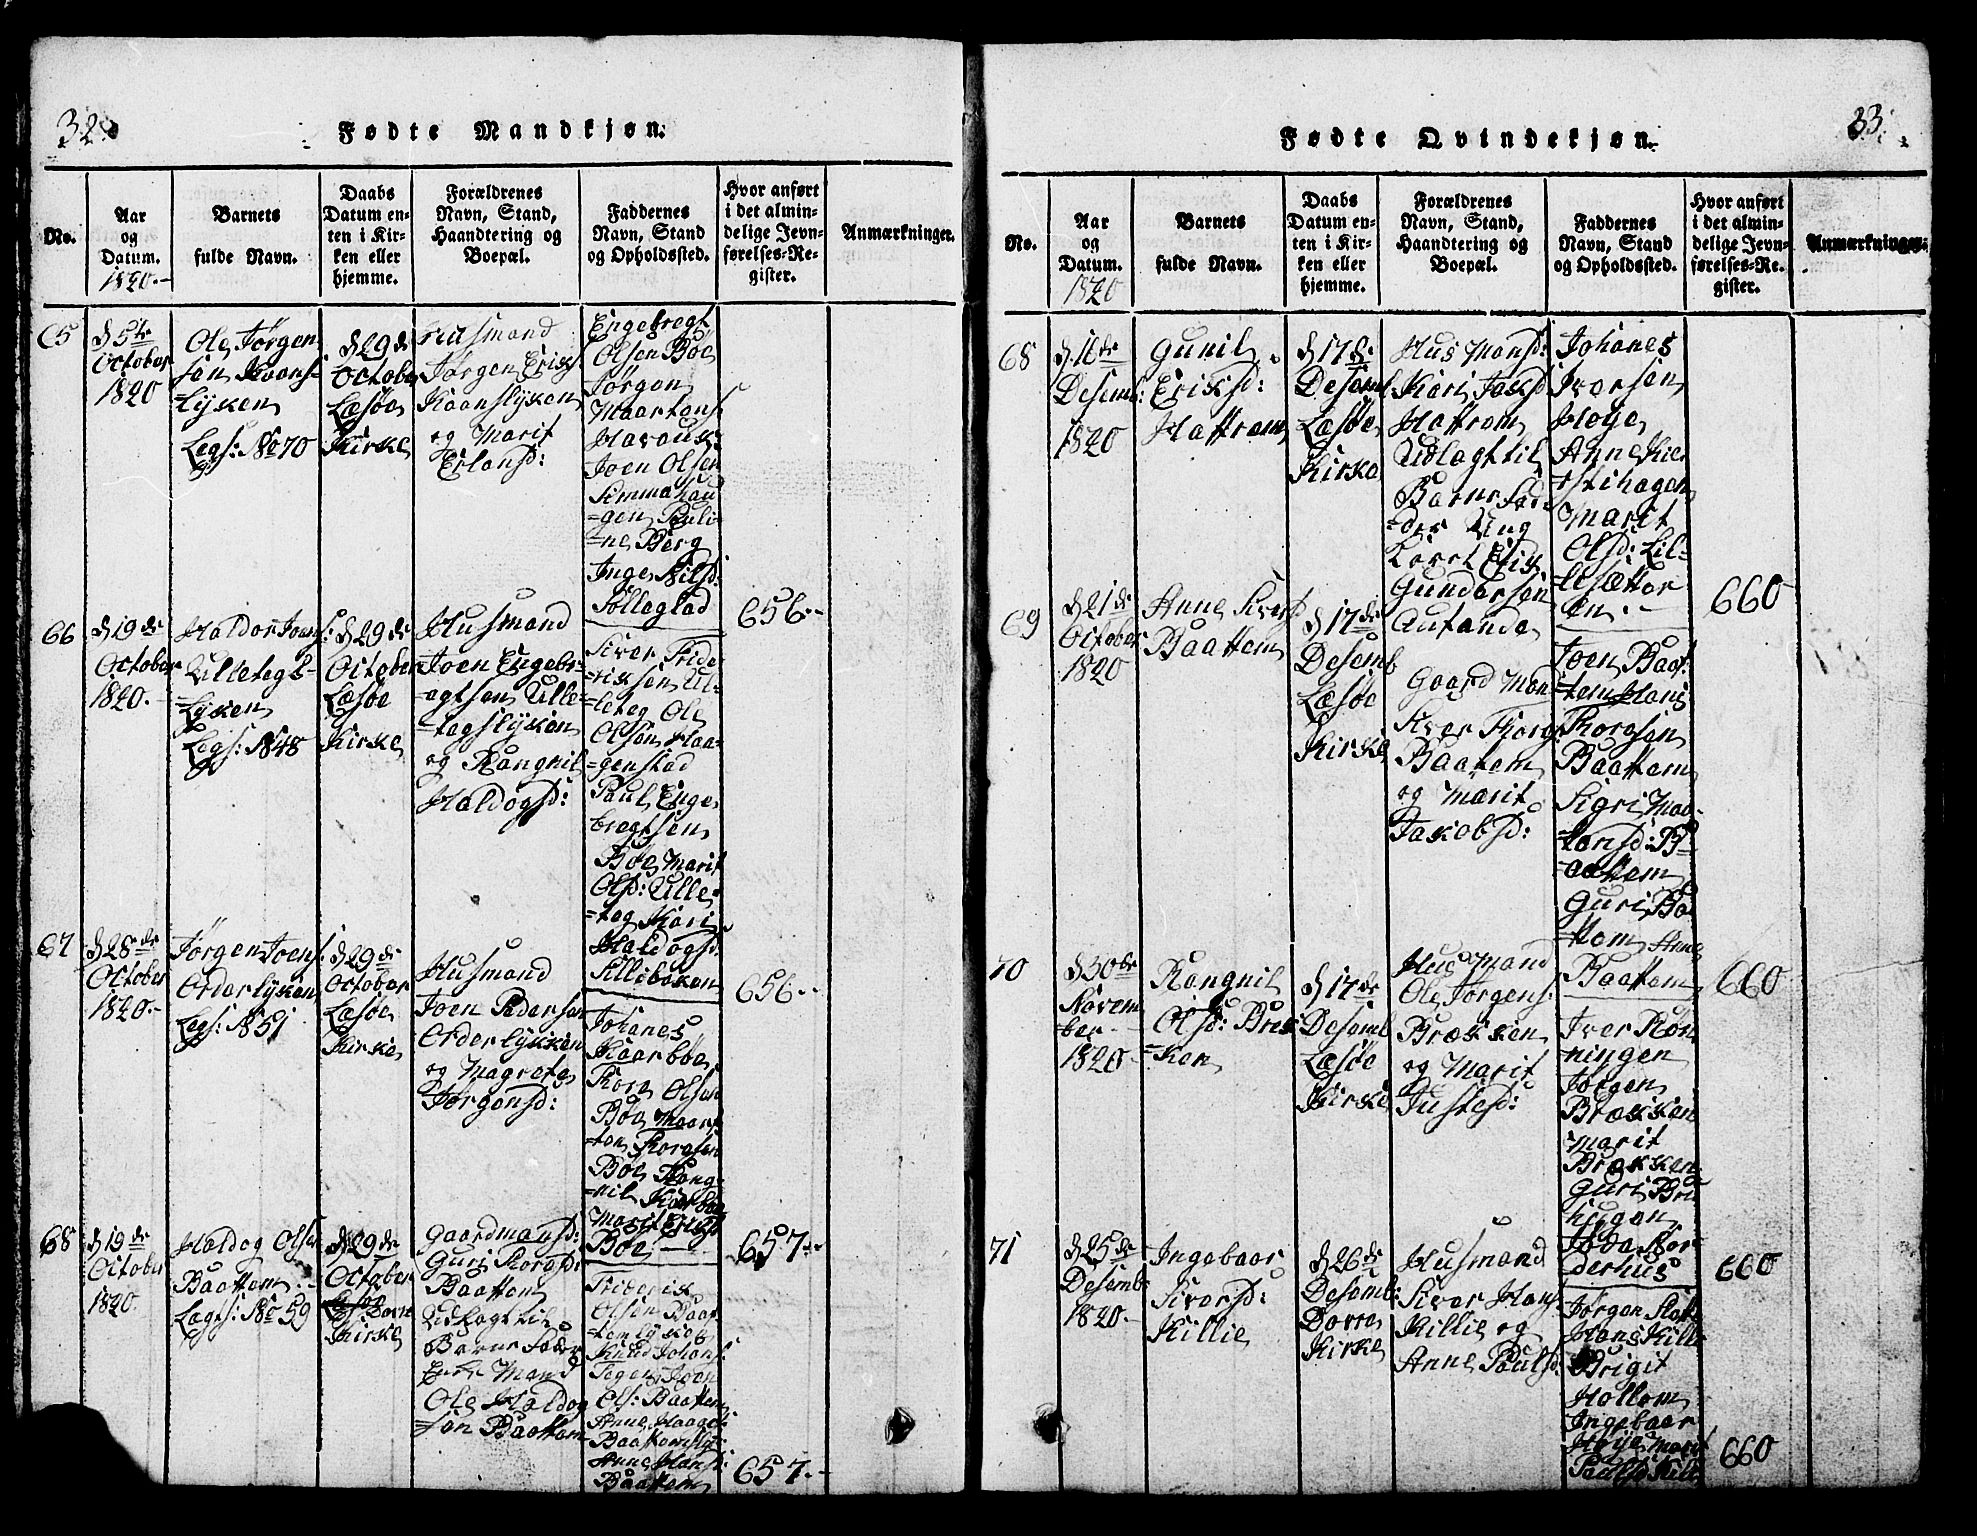 32
Fødte Mandkjøn.
No.
Aar
og
Datum.
1820.-
Barnets
fulde Navn.
Daabs
Datum en-
ten i Kir-
ken eller
hjemme.
Forældrenes
Navn, Stand,
Haandtering og
Boepæl.
Faddernes
Navn, Stand
og Opholdssted.
Hvor anført
i det almin-
delige Jevn-
førelses-Re-
gister.
Anmærkninger.
65
d 5te
October
1820
Ole Jørgen
sen Kaans-
Lyken
Legs: No 70
d 29de
October
Læsøe
Kirke
Husmand
Jørgen Eriks
Kaanslyken
og Marit
Erlansd:
Engebregt
Olsen Bøe
Jørgen
Maartens
Joen Olsen
-gen Pauli
-ne Berg
Inge Nilsd:
66
d 19de
October
1820.-
Haldor Joens:
Ulletegs-
Lyken
Legs: No 48
d 29de
October
Læsøe
Kirke
Husmand
Joen Engebr-
-egtsen Ulle-
-tegslyken
og Rangnil
Haldogsd:
Siver Fride-
-riksen Ul-
-leteg Ole
Olsen Haa-
-genstad
Paul Enge
bregtsen
Bøe Marit
Olsd: Ulle-
-teg Kari
Haldogsd:
656.-
67
d 28de
October
1820.-
Jørgen Joens:
Orderlyken
Legs: No 51
d 29de
October
Læsøe
Kirke
Husmand
Joen Pedersen
Orderlykken
og Magrete
Jørgensd:
Johanes
Kaarbøe
Thore Olsen
Bøe Maar-
-ten Thoresen
Bøe Rang-
-nil Kaarbøe
Marit
Bøe
656.-
68
d 19de
October
1820.
Haldog Olsen
Baattem
Legs: No 59
d 29de
October
Dovre
Kirke
Gaardmansd:
Guri Thoresd:
Baattem
Udlagt til
Barne Fader
Enke Mand
Ole Haldog
-sen Baattem
Friderik
Olsen Baat
-temlyskob
Knud Johans:
Olss: Baattem
Anne
Anne Hans:
Baattem
657.-
657.-
33
Fødte Qvindekjøn.
No.
Aar
og
Datum.
1820
Barnets
fulde Navn.
Daabs
Datum en-
ten i Kir-
ken eller
hjemme.
Forældrenes
Navn, Stand,
Haandtering og
Boepæl.
Faddernes
Navn, Stand
og Opholdssted.
Hvor anført
i det almin-
delige Jevn-
førelses-Re-
gister.
Anmærkninger.
68
Desemb:
1820
Gunil
Eriksd:
Hattrem
d 17de
Desemb
Læsøe
Kirke
Hus Mansd:
Kari
Hattrem
Udlagt til
Barne Fad-
-der Ung
Karl Erik
Gundersen
Johanes
Iversen
Høye
Anne Kie
-stihagen
Marit
Olsd: Lil-
-lesætter
en.-
660
69
d 21de
October
1820
Anne Sivers
Baattem
d 17de
Desemb
Læsøe
Kirke
Gaard Man
Siver Thorgs:
Baattem
og Marit
Jakobsd:
Joen Baat
-tem Hans
Thoresen
Baattem
Sigri Maa-
-tensd: B-
-aattem
Guri Baa
-ttem Anne
Baattem
660
70
d 30de
Novem
ber
1820.-
Rangnil
Olsd: Brek
-ken
d 17de
Desemb
Læsøe
Kirke
Hus Mand
Ole Jørgens:
Brækken
og Marit
Justesd:
Iver Røn
-ningen
Jørgen
Brækken
Marit
Brækken
Guri
660
71
d 25de
Desemb
1820.-
Ingebaar
Siversd:
Killie
d 26de
Desemb:
Dovre
Kirke
Husmand
Siver Hans:
Killie og
Anne Paulsd:
Jørgen
Hans Kille
Brigit
Hollem
Ingebaar
Høye Marit
660